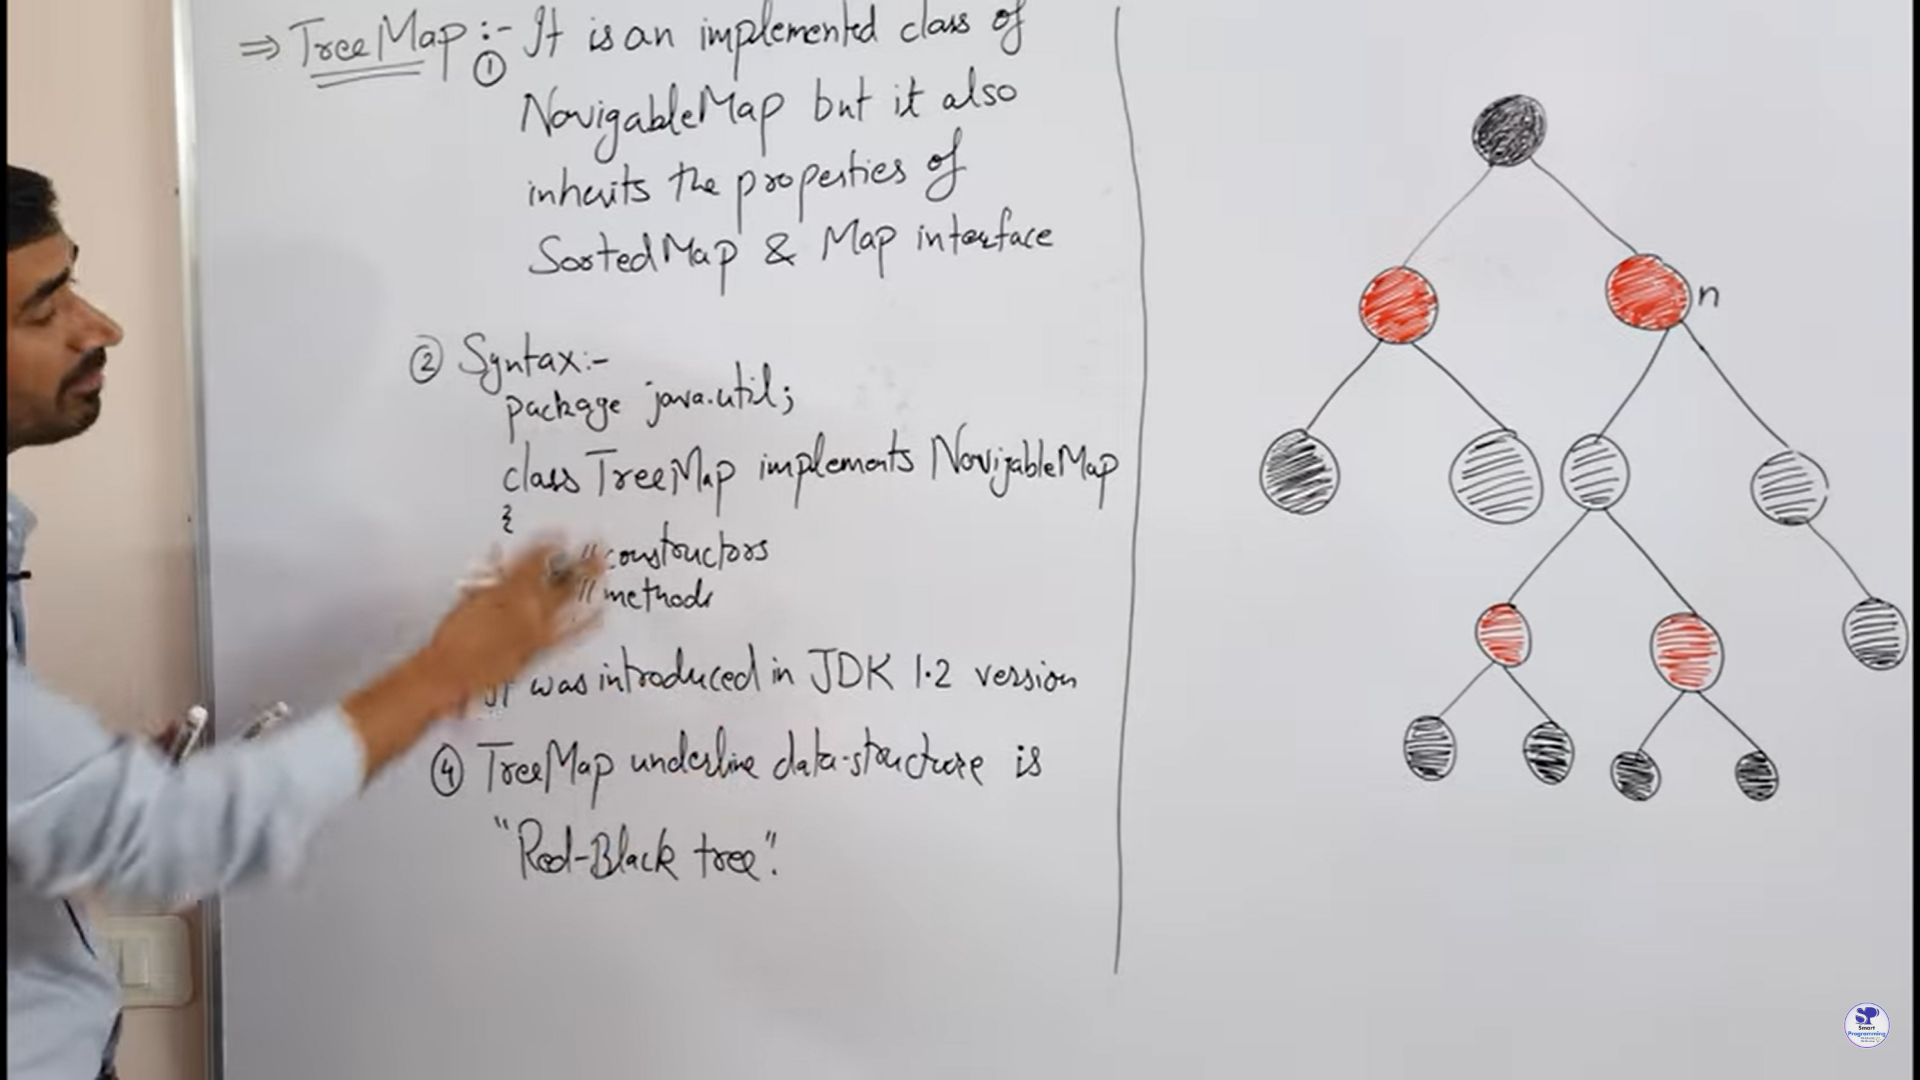 ⇒ TreeMap :- ① It is an implemented class of
NavigableMap but it also
inherits the properties of
SortedMap & Map interface
② Syntax:-
package java.util;
class TreeMap implements NavigableMap
{
// constructors
// methods
It was introduced in JDK 1.2 version
④ TreeMap underline data-structure is
"Red-Black tree".
n
SP
Smart
Programming